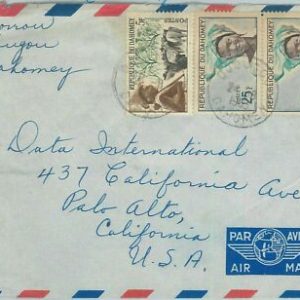 ougou
Dahomey
POSTES
REPUBLIQUE DU DAHOMEY
REPUBLIQUE DU DAHOMEY
25F
REPUBLIQUE DU DAHOMEY
Data International
437 California Ave
Palo Alto,
California
U.S.A.
PAR AVI
AIR MA